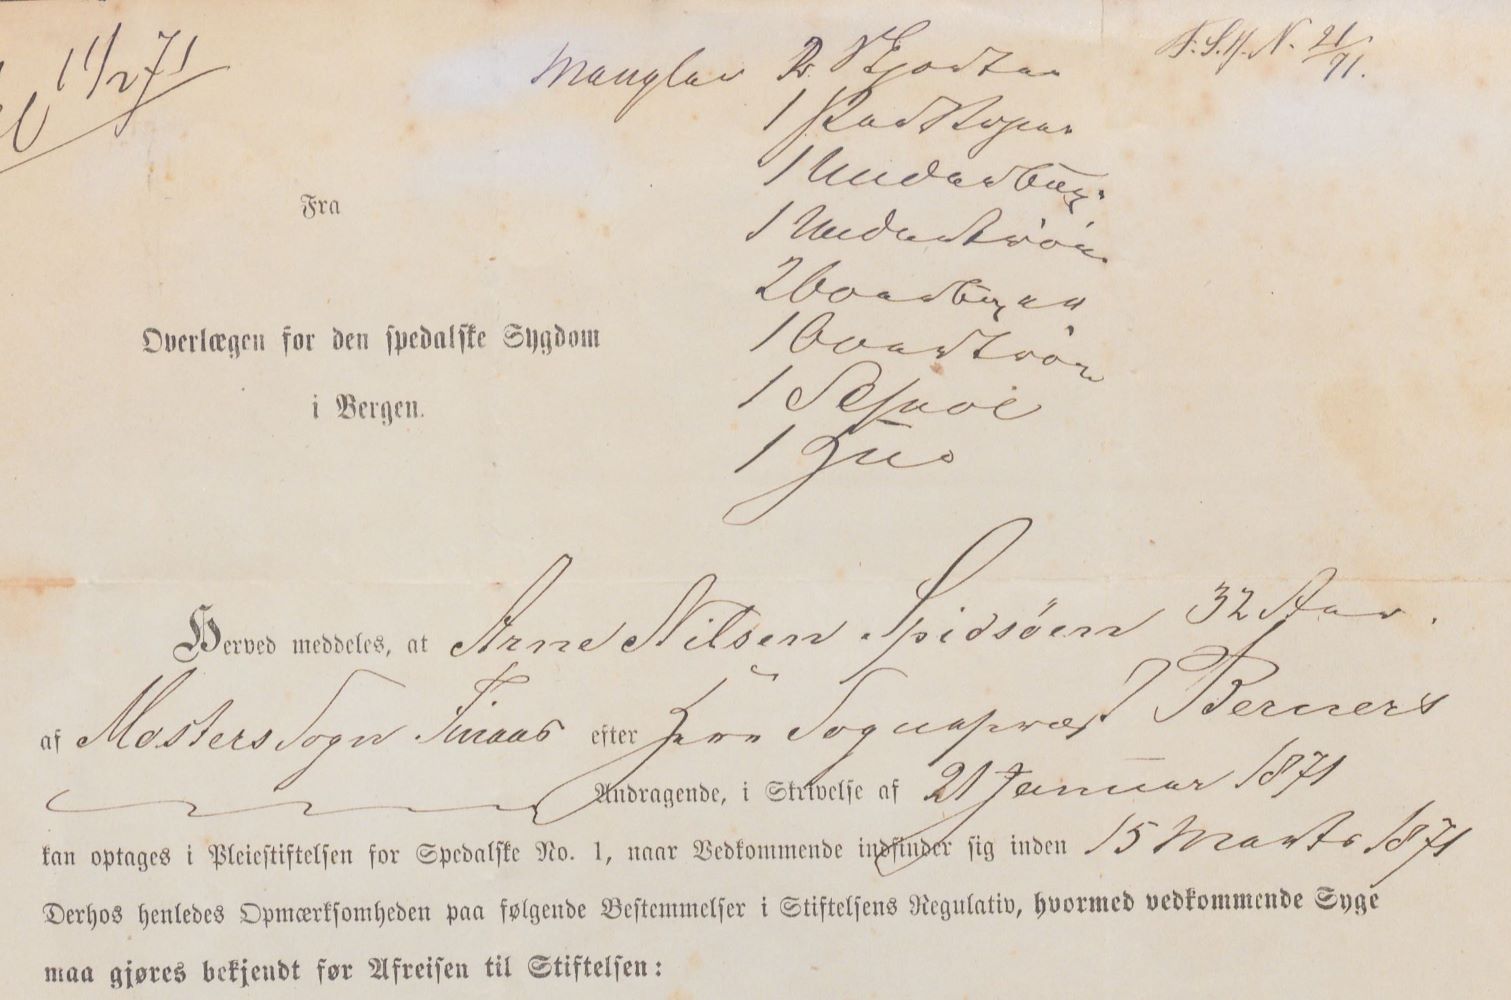 11/2 71
Mangler 2 Skjorter
F. S. N. 21/71.
1 Par Strømper
1 Underbuxe
1 Undertrøie
2 Overbuxer
1 Overtrøie
1 Skjrot
1 Hue
Fra
Overlægen for den spedalske Sygdom
i Bergen.
Herved meddeles, at Arne Nilsen Spidsøen 32 Aar.
af Mosters Sogn Finaas efter Herr Sognepræst Berners
Andragende, i Skrivelse af 21 Januar 1871
kan optages i Pleiestiftelsen for Spedalske No. 1, naar Vedkommende indfinder sig inden 15 Marts 1871
Derhos henledes Opmærksomheden paa følgende Bestemmelser i Stiftelsens Regulativ, hvormed vedkommende Syge
maa gjøres bekjendt før Afreisen til Stiftelsen: